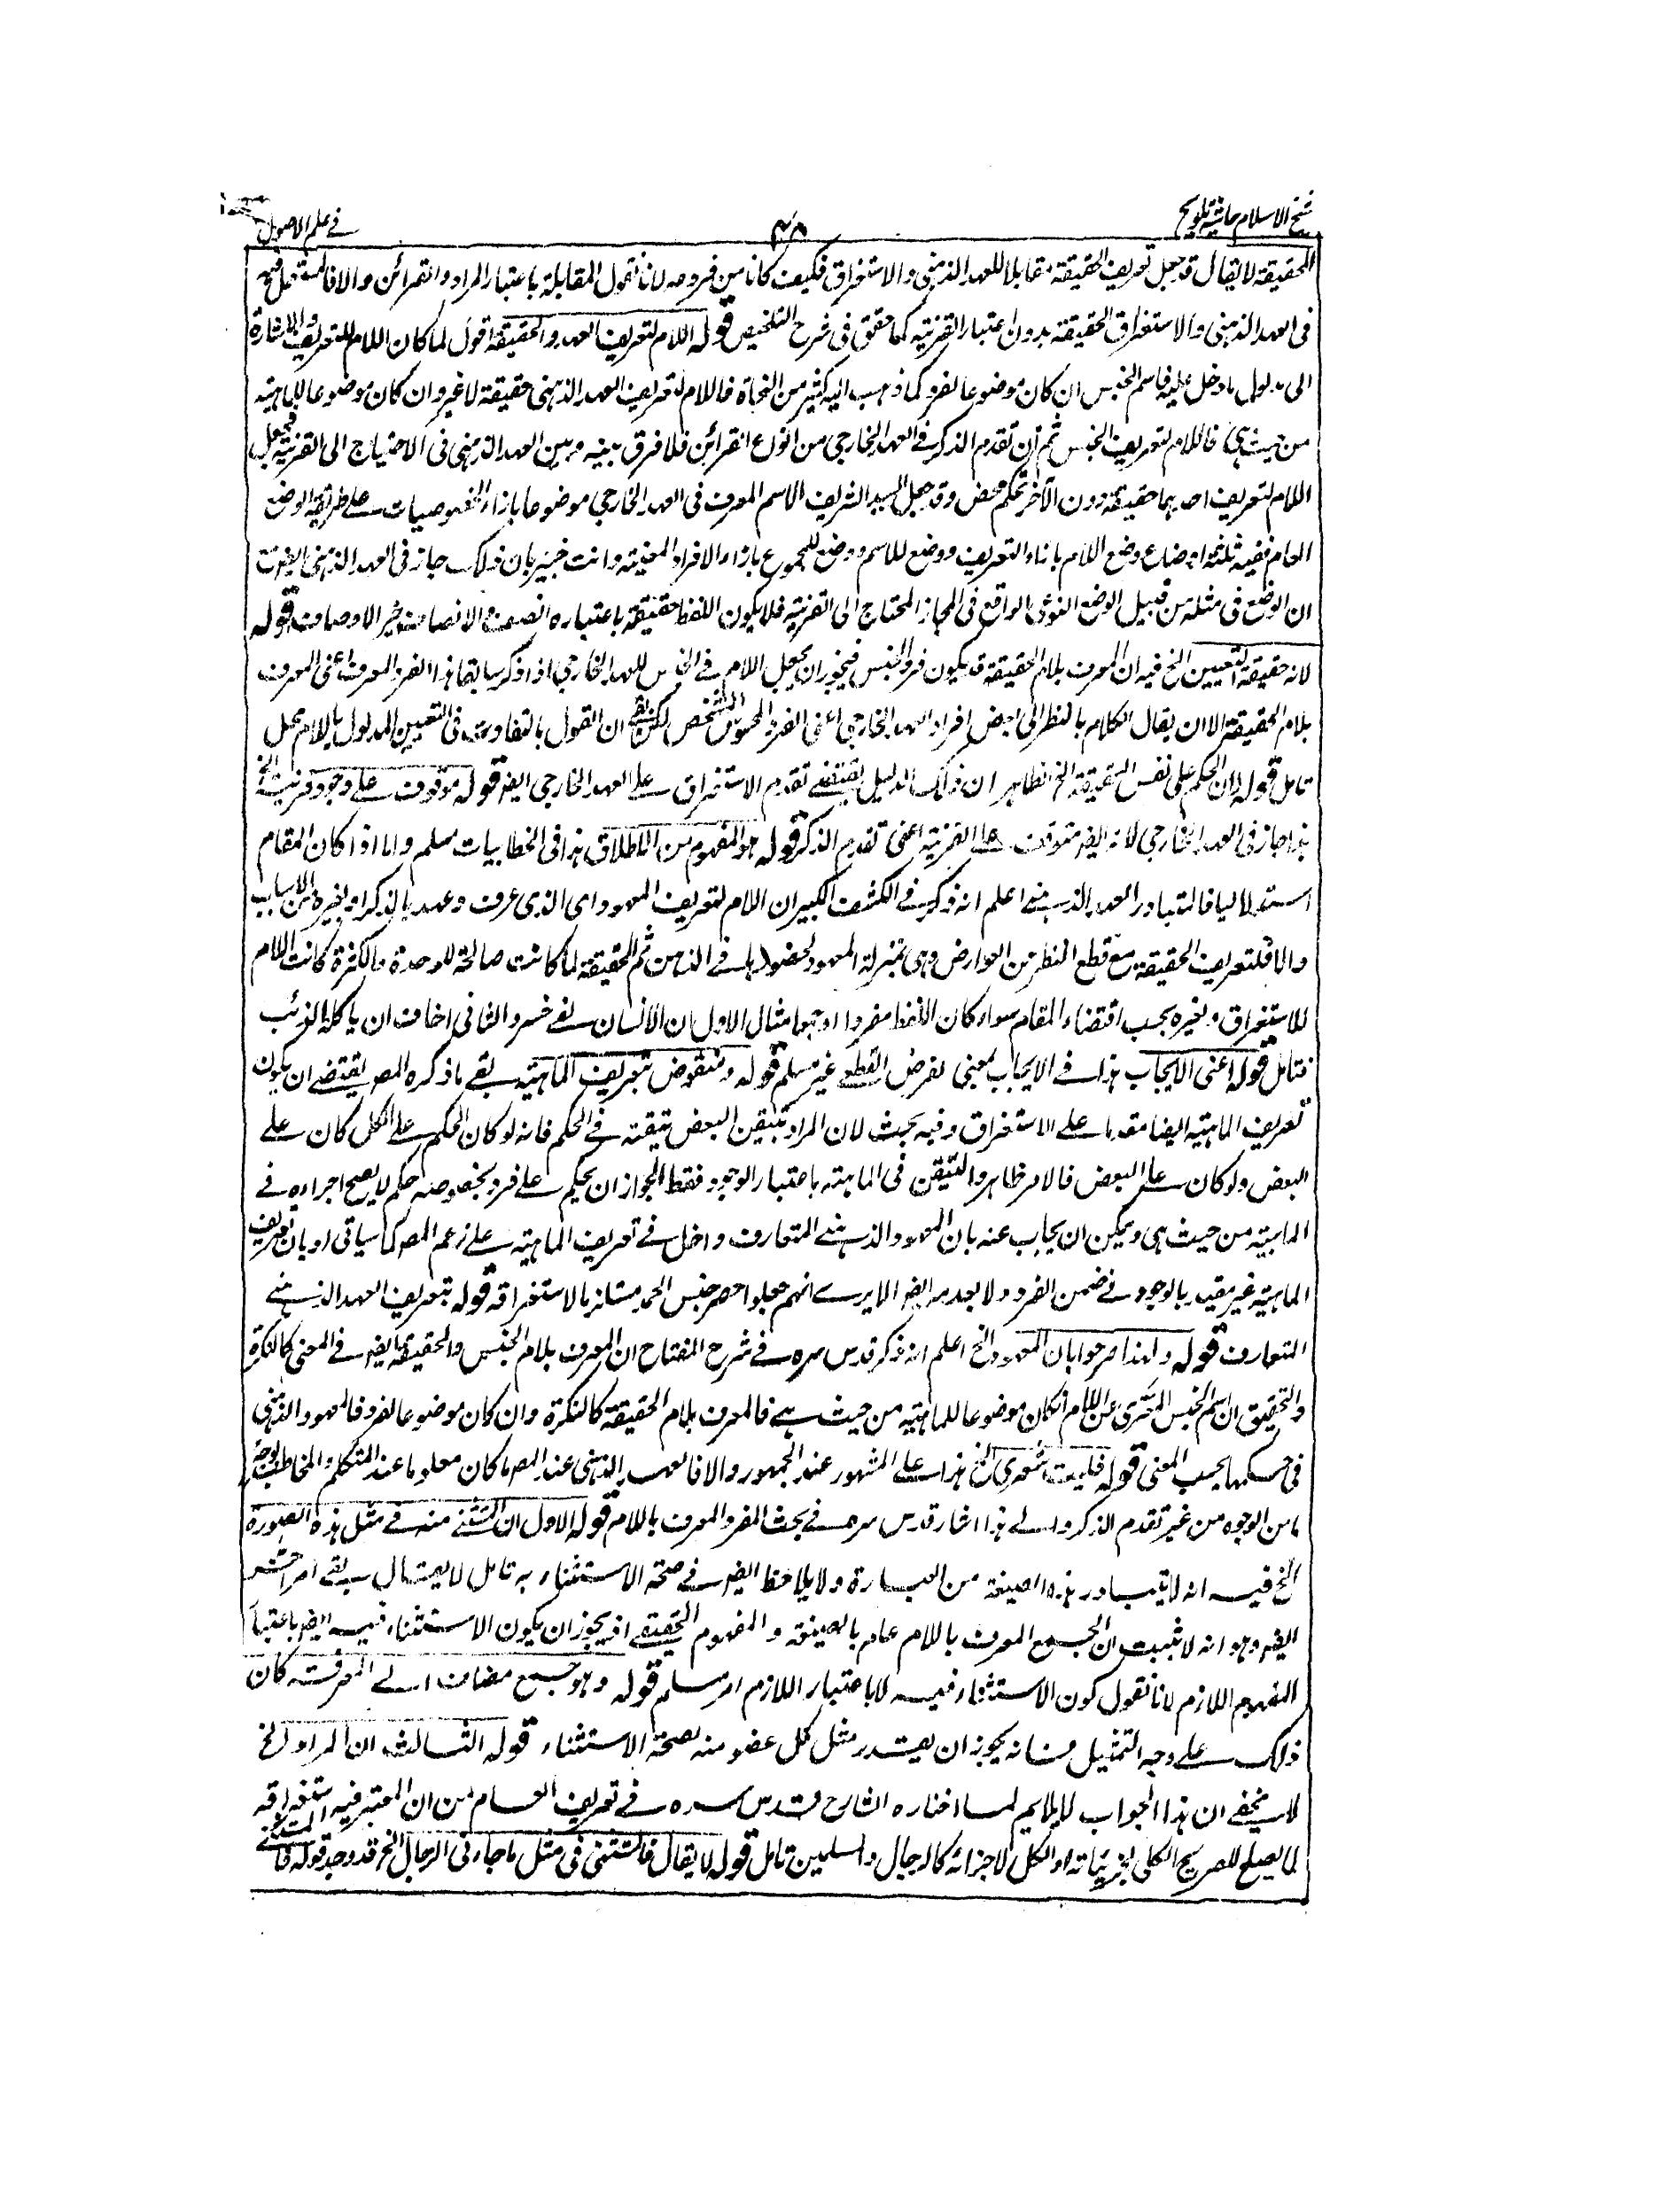 شيخ الاسلام حاشية تلويح
٤٨
في علم الاصول
الحقيقة لا يقال قد جعل تعريف الحقيقة مقابلا للعهد الذهني والاستغراق فكيف كانا من فروعه لانا نقول المقابلة باعتبار المراد والقرائن والا فالمستعمل فيه
في العهد الذهني والاستغراق الحقيقة بدون اعتبار القرينة كما حقق في شرح التلخيص قوله اللام لتعريف العهد والحقيقة اقول لما كان اللام للتعريف والاشارة
الى مدلول ما دخل عليه فاسم الجنس ان كان موضوعا لفرد كما ذهب اليه كثير من النحاة فاللام لتعريف العهد الذهني حقيقة لا غير وان كان موضوعا للماهية
من حيث هي فاللام لتعريف الجنس ثم ان تقدم الذكر في العهد الخارجي من انواع القرائن فلا فرق بينه وبين العهد الذهني في الاحتياج الى القرينة فجعل
اللام لتعريف احدهما حقيقة دون الآخر تحكم محض وقد جعل السيد الشريف الاسم المعرف في العهد الخارجي موضوعا بازاء الخصوصيات على طريقة الوضع
العام ففيه ثلثة اوضاع وضع اللام بازاء التعريف ووضع للاسم ووضع للمجموع بازاء الافراد المعينة وانت خبير بان ذلك جاز في العهد الذهني ايضا
ان الوضع في مثله من قبيل الوضع النوعي الواقع في المجاز المحتاج الى القرينة فلا يكون اللفظ حقيقة باعتباره انصف والانصاف خير الاوصاف قوله
لانه حقيقة التعيين الخ فيه ان المعرف بلام الحقيقة قد يكون فرد الجنس فيجوز ان يجعل اللام في الجنس للعهد الخارجي اذا ذكر سابقا هذا الفرد المعرف اعني المعرف
بلام الحقيقة الا ان يقال الكلام بالنظر الى بعض افراد العهد الخارجي اعني الفرد المحسوس المتشخص لكن ان القول بالتفاوت في التعيين المدلول باللام محل
تامل قوله لان الحكم على نفس الحقيقة الخ الظاهر ان ذلك الدليل يقتضي تقدم الاستغراق على العهد الخارجي ايضا قوله موقوف على وجود قرينة الخ
هذا جاز في العهد الخارجي لانه ايضا متوقف على القرينة اعني تقدم الذكر قوله هو المفهوم من الاطلاق هذا في الخطابيات مسلم واما اذا كان المقام
استدلاليا فالمتبادر العهد الذهني اعلم انه ذكر في الكشف الكبير ان اللام لتعريف المعهود اي الذي عرف وعهد بالذكر او بغيره من الاسباب
والا فلتعريف الحقيقة مع قطع النظر عن العوارض وهي بمنزلة المعهود لحضورها في الذهن ثم الحقيقة لما كانت صالحة للوحدة والكثرة كانت اللام
للاستغراق وغيره بحسب اقتضاء المقام سواء كان اللفظ مفردا او جمعا مثال الاول ان الانسان لفي خسر والثاني اخاف ان ياكله الذئب
فتامل قوله اعني الايجاب هذا في الايجاب بمعنى الفرض القطعي غير مسلم قوله ومنقوض بتعريف الماهية بقي ما ذكره المصـ يقتضي ان يكون
تعريف الماهية ايضا مقدما على الاستغراق وفيه بحث لان المراد بتيقن البعض تيقنه في الحكم فانه لو كان الحكم على الكل كان على
البعض ولو كان على البعض فالامر ظاهر والتيقن في الماهية باعتبار الوجود فقط لجواز ان يحكم على فرد بخصوصه حكم لا يصح اجراءه في
الماهية من حيث هي ويمكن ان يجاب عنه بان المعهود الذهني المتعارف داخل في تعريف الماهية على زعم المصـ كما سياتي او بان تعريف
الماهية غير مقيد بالوجود في ضمن الفرد ولا بعدمه ايضا الا يرى انهم جعلوا حصر جنس الحمد مستلزما لاستغراقه قوله بتعريف العهد الذهني
المتعارف قوله ولهذا صرحوا بان المعهود الخ اعلم انه ذكر قدس سره في شرح المفتاح ان المعرف بلام الجنس والحقيقة ايضا في المعنى كالنكرة
والتحقيق ان اسم الجنس المعرى عن اللام ان كان موضوعا للماهية من حيث هي فالمعرف بلام الحقيقة كالنكرة وان كان موضوعا لفرد فالمعهود الذهني
في حكمها بحسب المعنى قوله فليت شعري الخ هذا على المشهور عند الجمهور والا فالعهد الذهني عند المصـ ما كان معلوما عند المتكلم والمخاطب بوجه
ما من الوجوه من غير تقدم الذكر والى هذا اشار قدس سره في بحث المفرد المعرف باللام قوله الاول ان المستثنى منه في مثل هذه الصورة
الخ فيه انه لا يتبادر هذه الصيغة من العبارة ولا يلاحظ ايضا في صحة الاستثناء به تامل لا يقال بقي امر آخر
ايضا وهو انه لا يثبت ان الجمع المعرف باللام عام بالصيغة والمفهوم الحقيقي اذ يجوز ان يكون الاستثناء فيه ايضا باعتبار
المفهوم اللازم لانا نقول كون الاستثناء فيه لا باعتبار اللازم امر مسلم قوله وهو جمع مضاف الى المعرفة كان
ذلك على وجه التمثيل فانه يجوز ان يقدر مثل كل عضو منه لصحة الاستثناء قوله الثالث ان المراد الخ
لا يخفى ان هذا الجواب لا يلايم لما اختاره الشارح قدس سره في تعريف العام من ان المعتبر فيه استغراقه
لما يصلح للصريح الكلي لجزئياته او الكل لاجزائه كالرجال والمسلمين تامل قوله لا يقال فالمستثنى في مثل ما جاءني الرجال الخ قد وجد قوله